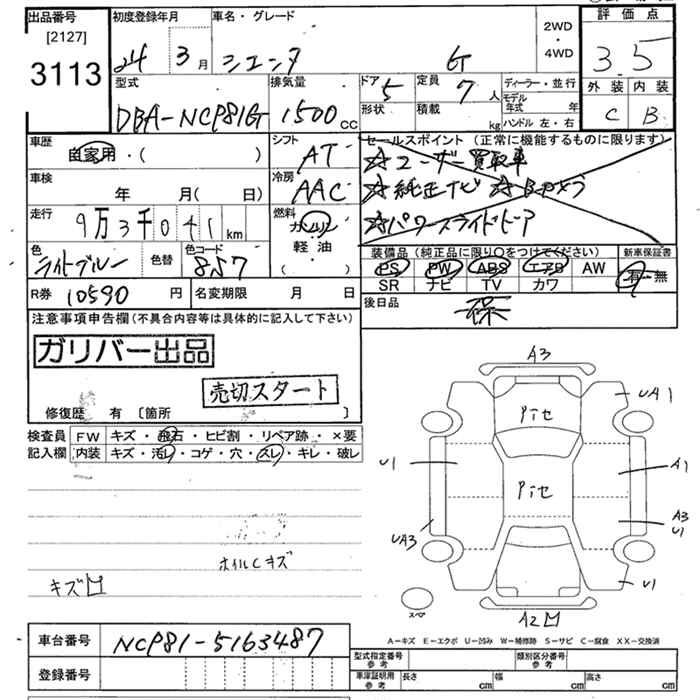 出品番号 初度登録年月 車名・グレード 2WD・4WD 評価点
[2127]
3113 24年 3月 シエンタ G 3.5
型式 排気量 ドア 5 定員 7人 ディーラー・並行 外装 内装
DBA-NCP81G 1500cc 形状 積載 kg モデル年式 年 C B
ハンドル 左・右
車歴 自家用・( ) シフト AT セールスポイント (正常に機能するものに限ります)
☆ユーザー買取車
車検 年 月( 日) 冷房 AAC ☆純正ナビ ☆Bカメラ
走行 9万3千041km 燃料 ガソリン ☆パワースライドドア
軽油
( )
色 ライトブルー 色替 色コード 8S7
装備品 (純正品に限り○をつけてください) 新車保証書
PS PW ABS エアB AW 有・無
SR ナビ TV カワ
R券 10590円 名変期限 月 日 後日品 保
注意事項申告欄(不具合内容等は具体的に記入して下さい)
ガリバー出品
売切スタート
修復歴 有 [箇所 ]
検査員 FW キズ・飛石・ヒビ割・リペア跡・×要
記入欄 内装 キズ・汚レ・コゲ・穴・スレ・キレ・破レ
ホイルCキズ
キズ凹
A3
UA1
Pﾅｾ
U1
A1
Pﾅｾ
UA3
A3
U1
U1
スペア
A2凹
A-キズ E-エクボ U-凹み W-補修跡 S-サビ C-腐食 XX-交換済
車台番号 NCP81-5163487
型式指定番号 参考 類別区分番号 参考
登録番号
車庫証明用 参考 長さ cm 幅 cm 高さ cm